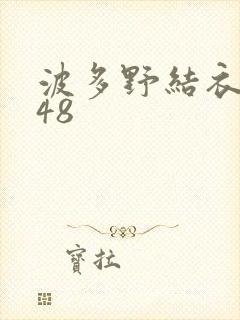 波多野結衣
48
寶拉